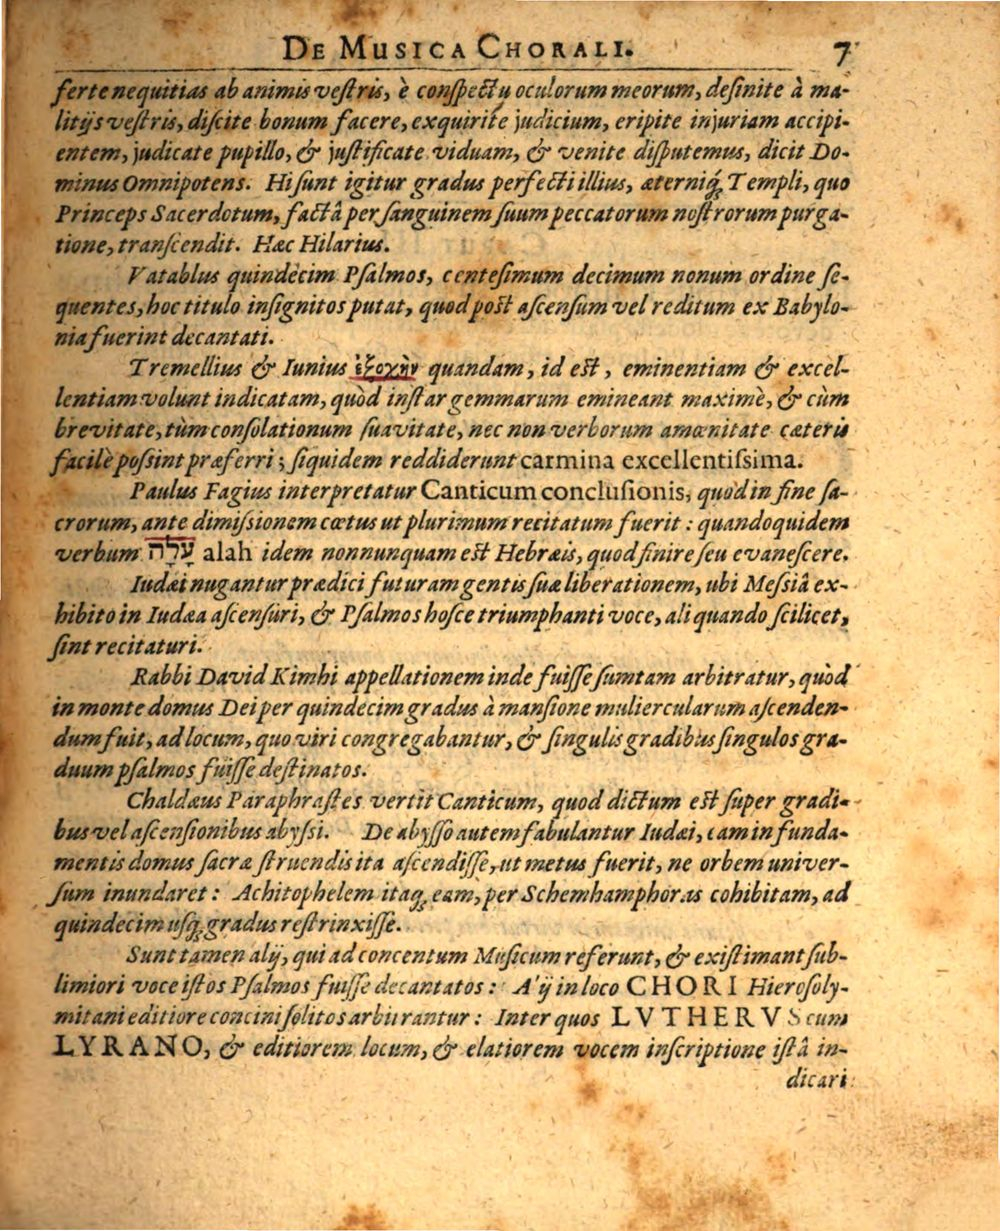 DE MUSICA CHORALI. 7
ferte nequitias ab animis veſtris, è conſpectu oculorum meorum, deſinite à ma-
litijs veſtris, diſcite bonum facere, exquirite judicium, eripite injuriam accipi-
entem, judicate pupillo, & juſtificate viduam, & venite diſputemus, dicit Do-
minus Omnipotens. Hi ſunt igitur gradus perfecti illius, æterniq́; Templi, quo
Princeps Sacerdotum, factâ per ſanguinem ſuum peccatorum noſtrorum purga-
tione, tranſcendit. Hæc Hilarius.
Vatablus quindecim Pſalmos, centeſimum decimum nonum ordine ſe-
quentes, hoc titulo inſignitos putat, quod poſt aſcenſum vel reditum ex Babylo-
nia fuerint decantati.
Tremellius & Iunius ἐξοχὴν quandam, id eſt, eminentiam & excel-
lentiam volunt indicatam, quòd inſtar gemmarum emineant maximè, & cùm
brevitate, tùm conſolationum ſuavitate, nec non verborum amœnitate cæteris
facilè poſſint præferri; ſiquidem reddiderunt carmina excellentiſsima.
Paulus Fagius interpretatur Canticum concluſionis, quod in fine ſa-
crorum, ante dimiſsionem cœtus ut plurimum recitatum fuerit: quandoquidem
verbum עָלָה alah idem nonnunquam eſt Hebræis, quod finire ſeu evaneſcere.
Iudæi nugantur prædici futuram gentis ſuæ liberationem, ubi Meſsiâ ex-
hibito in Iudæa aſcenſuri, & Pſalmos hoſce triumphanti voce, aliquando ſcilicet,
ſint recitaturi.
Rabbi David Kimhi appellationem inde fuiſſe ſumtam arbitratur, quòd
in monte domus Dei per quindecim gradus à manſione muliercularum aſcenden-
dum fuit, ad locum, quo viri congregabantur, & ſingulis gradibus ſingulos gra-
duum pſalmos fuiſſe deſtinatos.
Chaldæus Paraphraſtes vertit Canticum, quod dictum eſt ſuper gradi-
bus vel aſcenſionibus abyſsi. De abyſſo autem fabulantur Iudæi, eam in funda-
mentis domus ſacræ ſtruendis ita aſcendiſſe, ut metus fuerit, ne orbem univer-
ſum inundaret: Achitophelem itaq; eam, per Schemhamphoras cohibitam, ad
quindecim uſq; gradus reſtrinxiſſe.
Sunt tamen alij, qui ad concentum Muſicum referunt, & exiſtimant ſub-
limiori voce iſtos Pſalmos fuiſſe decantatos: A'ij in loco CHORI Hieroſoly-
mitani editiore concini ſolitos arbitrantur: Inter quos LVTHERVS cum
LYRANO, & editiorem locum, & elatiorem vocem inſcriptione iſtâ in-
dicari